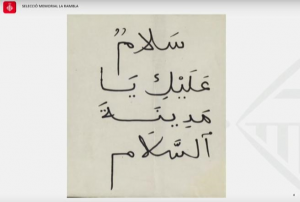 SELECCIÓ MEMORIAL LA RAMBLA
سَلَامٌ
عَلَيْكِ يَا
مَدِينَةَ
ٱلسَّلَام